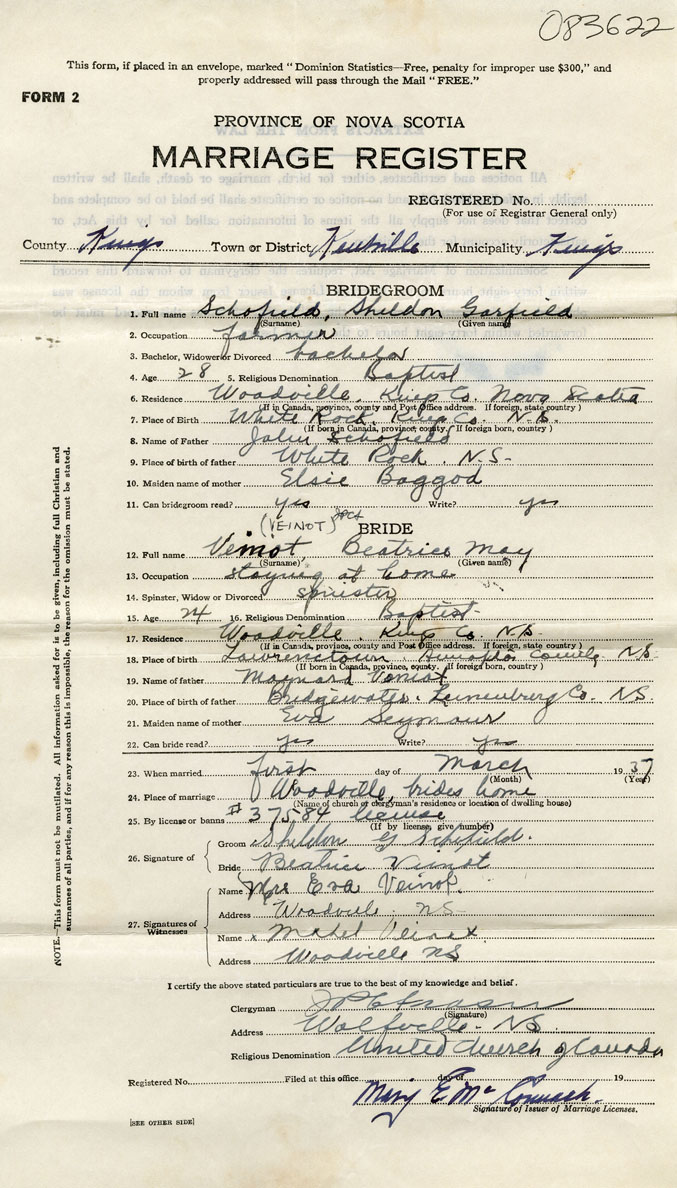 083622
This form, if placed in an envelope, marked “Dominion Statistics—Free, penalty for improper use $300,” and
properly addressed will pass through the Mail “FREE.”
FORM 2
PROVINCE OF NOVA SCOTIA
MARRIAGE REGISTER
REGISTERED No.
(For use of Registrar General only)
County Kings Town or District Kentville Municipality Kings
BRIDEGROOM
1. Full name Schofield, Sheldon Garfield
(Surname) (Given name)
2. Occupation farmer
3. Bachelor, Widower or Divorced bachelor
4. Age 28 5. Religious Denomination Baptist
6. Residence Woodville, Kings Co. Nova Scotia
(If in Canada, province, county and Post Office address. If foreign, state country)
7. Place of Birth White Rock, Kings Co. N.S.
(If born in Canada, province, county. If foreign born, country)
8. Name of Father John Schofield
9. Place of birth of father White Rock. N.S.
10. Maiden name of mother Elsie Baggod
11. Can bridegroom read? yes Write? yes
(VEINOT)
BRIDE
12. Full name Veinot, Beatrice May
(Surname) (Given name)
13. Occupation staying at home
14. Spinster, Widow or Divorced spinster
15. Age 24 16. Religious Denomination Baptist
17. Residence Woodville, Kings Co. N.S.
(If in Canada, province, county and Post Office address. If foreign, state country)
18. Place of birth Lawrencetown Annapolis County, N.S.
(If born in Canada, province, county. If foreign born, country)
19. Name of father Maynard Veniot
20. Place of birth of father Bridgewater. Lunenburg Co. N.S.
21. Maiden name of mother Eva Seymour
22. Can bride read? yes Write? yes
23. When married first day of March 1937
(Month) (Year)
24. Place of marriage Woodville, brides home
(Name of church or clergyman's residence or location of dwelling house)
25. By license or banns #37584 license
(If by license, give number)
26. Signature of
Groom Sheldon G Schofield.
Bride Beatrice Veinot
27. Signatures of
Witnesses
Name Mrs Eva Veinot.
Address Woodville NS
Name x Mabel Veinot
Address Woodville NS
I certify the above stated particulars are true to the best of my knowledge and belief.
Clergyman
(Signature)
Address Wolfville. NS
Religious Denomination United Church of Canada
Registered No. Filed at this office day of 19
Mary E. Mc
Signature of Issuer of Marriage Licenses.
[SEE OTHER SIDE]
NOTE.—This form must not be mutilated. All information asked for is to be given, including full Christian and
surnames of all parties, and if for any reason this is impossible, the reason for the omission must be stated.